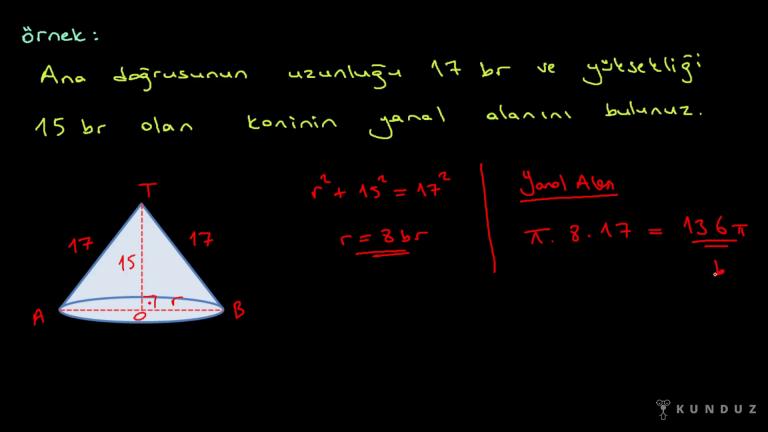 örnek:
Ana doğrusunun uzunluğu 17 br ve yüksekliği
15 br olan koninin yanal alanını bulunuz.
T
17
17
15
r
A
O
B
r² + 15² = 17²
r = 8 br
Yanal Alan
π . 8 . 17 = 136 π
b
KUNDUZ